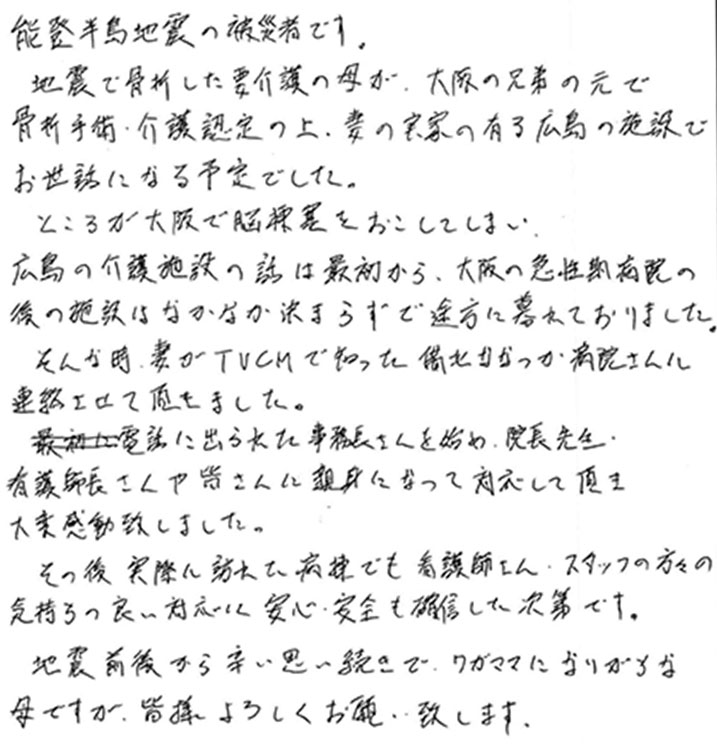 能登半島地震の被災者です。
地震で骨折した要介護の母が、大阪の兄弟の元で
骨折手術・介護認定の上、妻の実家の有る広島の施設で
お世話になる予定でした。
ところが大阪で脳梗塞をおこしてしまい、
広島の介護施設の話は最初から、大阪の急性期病院の
後の施設はなかなか決まらずで途方に暮れておりました。
そんな時、妻がTVCMで知った備北ななつか病院さんに
連絡させて頂きました。
最初に電話に出られた事務長さんを始め、院長先生・
看護師長さんや皆さんに親身になって対応して頂き
大変感動致しました。
その後実際に訪れた病棟でも看護師さん・スタッフの方々の
気持ちの良い対応に安心・安全も確信した次第です。
地震前後から辛い思い続きで、ワガママになりがちな
母ですが、皆様よろしくお願い致します。